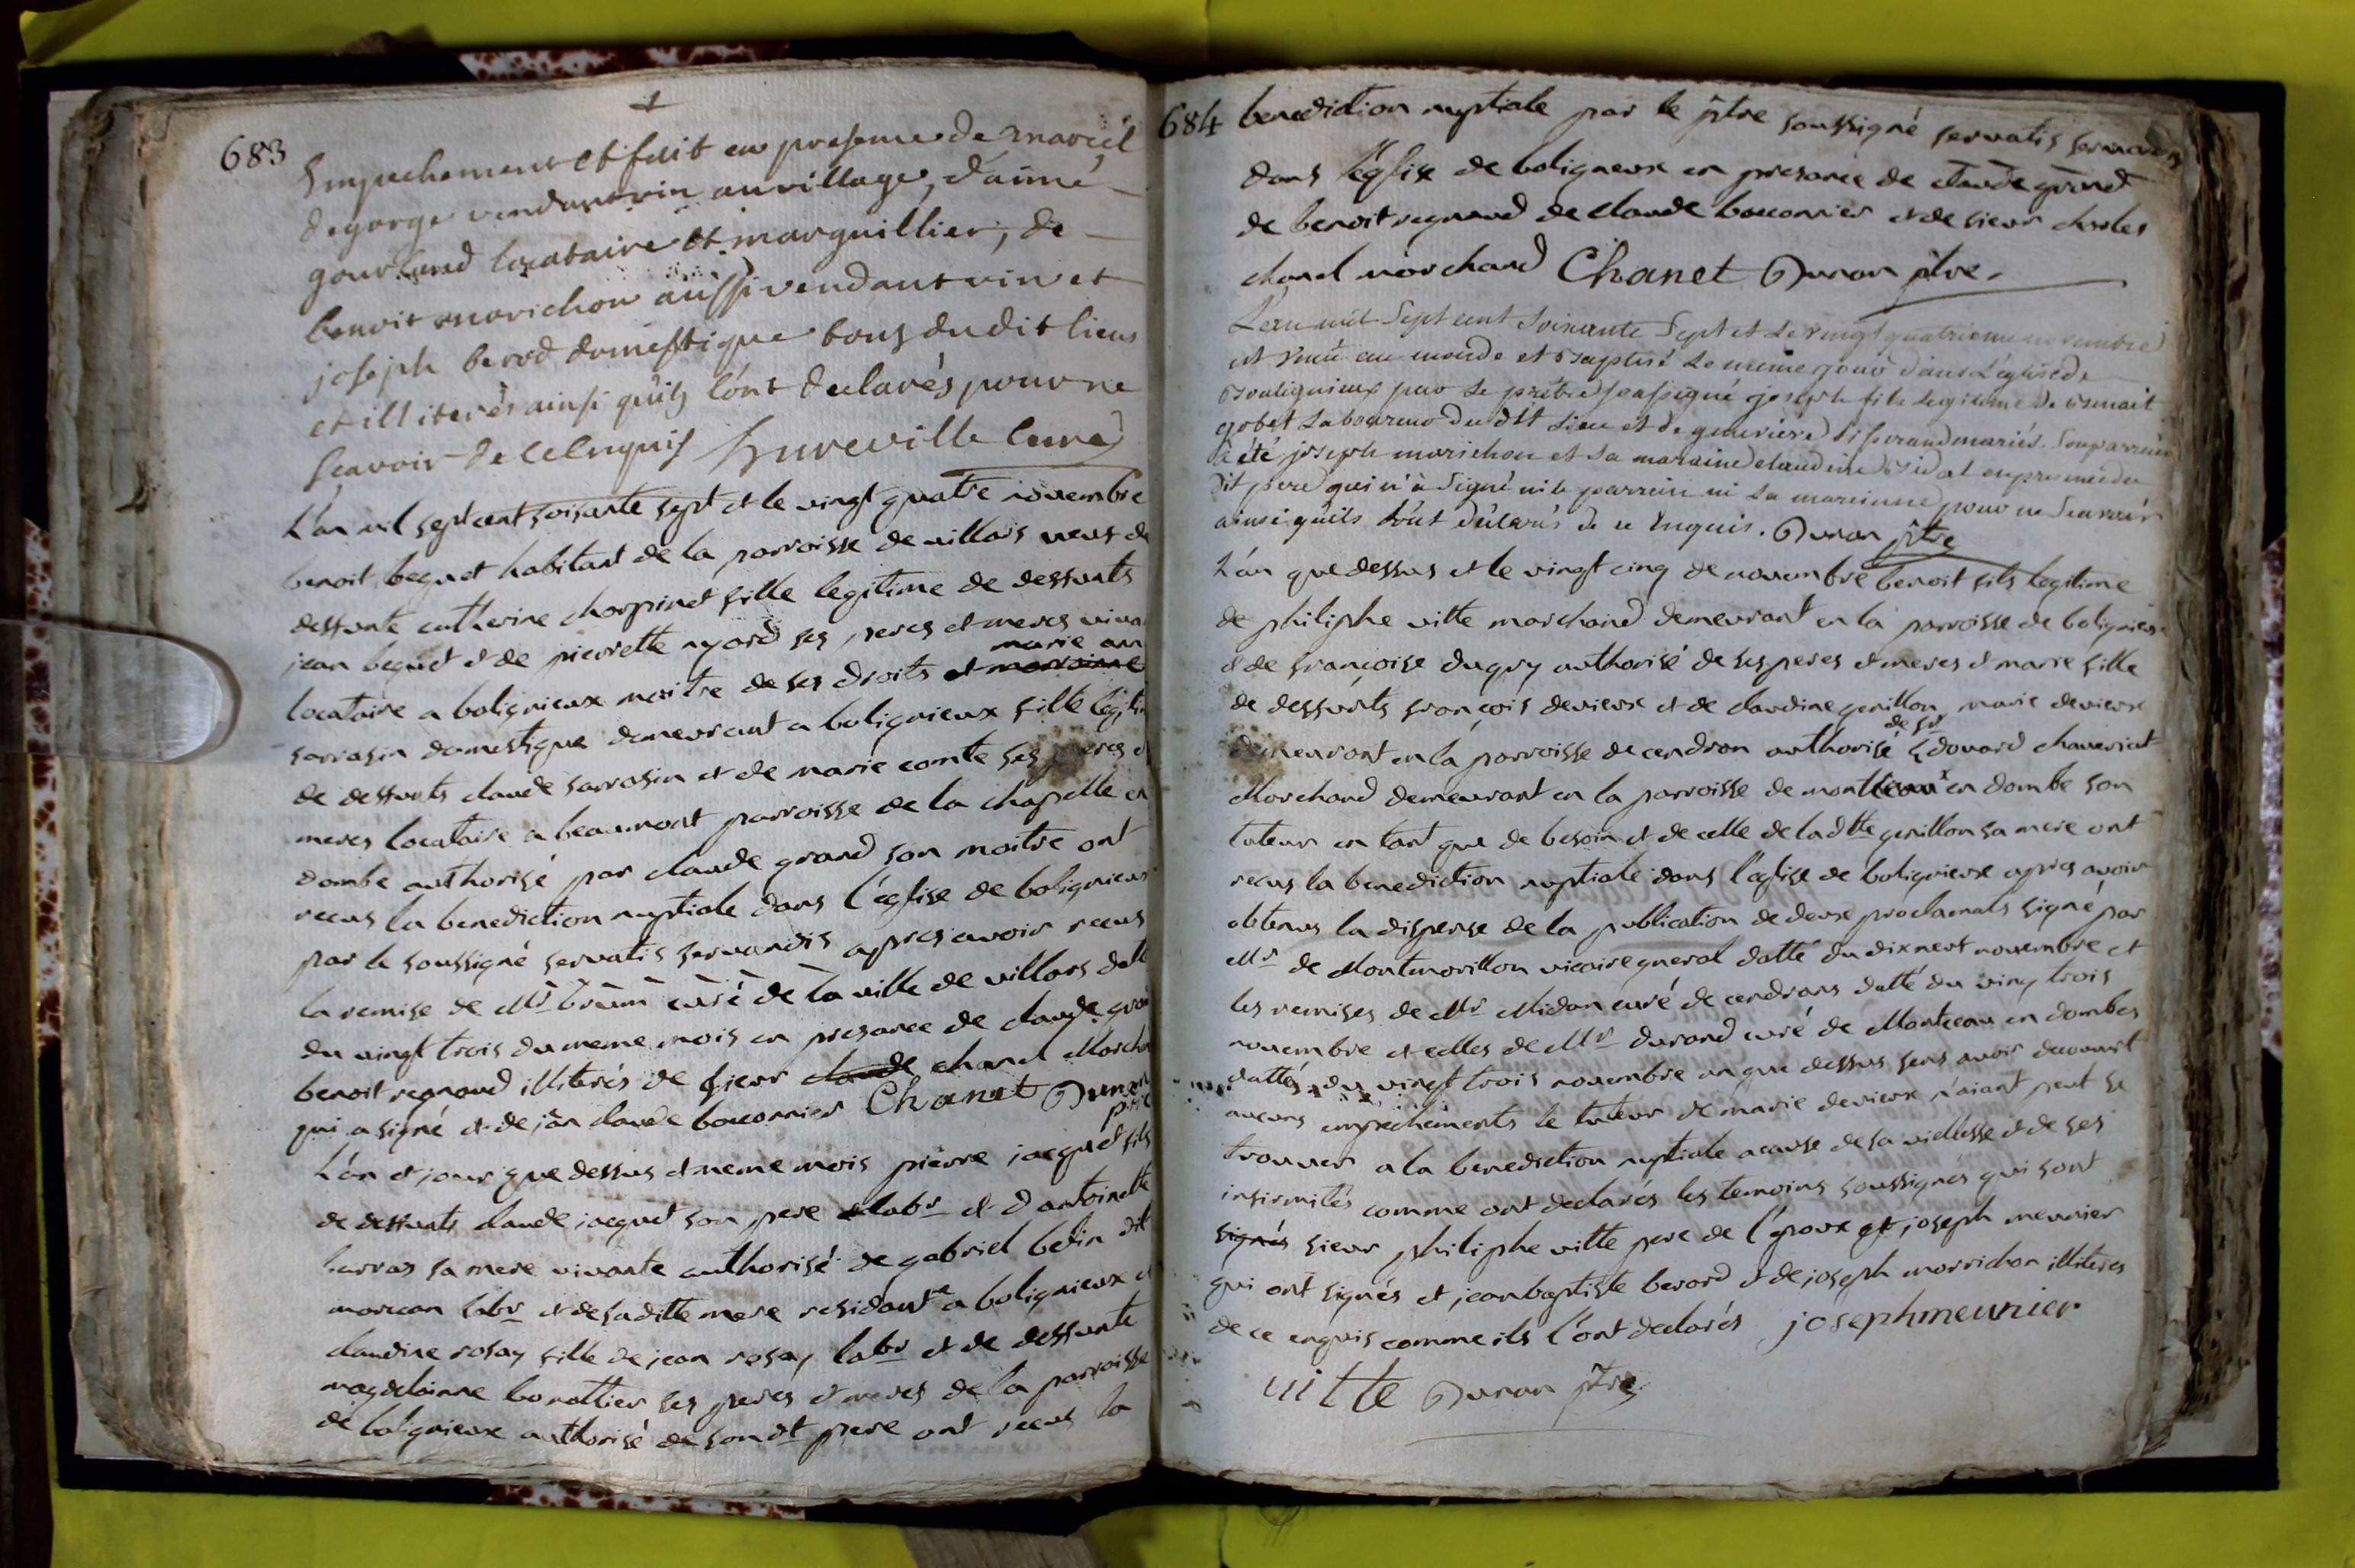 683
Empechement et fait en presence de marcel
degorge vendant vin au village, d'aimé
gourland locataire et marguillier, de
benoit morichon aussi vendant vin et
joseph berod domestique tous du dit lieu
et illiterés ainsi qu'ils l'ont declarés pour ne
scavoir de ce Enquis hureville curé
L'an mil sept cent soixante sept et le vingt quatre novembre
benoit bequet habitant de la parroisse de villars veuf de
deffunte catherine chorpinet fille legitime de deffunts
jean bequet et de pierrette nyard ses peres et meres vivan
locataire a bolignieux maitre de ses droits et marrainne marie an
sarrasin domestique demeurant a boligneux fille legitim
de deffunts claude sarrasin et de marie comte ses peres et
meres locataire a beaumont parroisse de la chapelle en
dombe authorisé par claude grand son maitre ont
recus la benediction nuptiale dans l'église de boligneux
par le soussigné servatis servandis apres avoir recus
la remise de Mr braun curé de la ville de villars datté
du vingt trois du meme mois en presance de claude gran
benoit regnaud illiterés de sieur claude chanel Marchan
qui a signé et de jan claude bouconnier Chanet Duran
ptre
L'an et jour que dessus et meme mois pierre jacquet fils
de deffunts claude jacquet son pere labr et d'antoinette
barras sa mere vivante authorisé de gabriel belin dit
marican labr et de saditte mere residante a boligneux et
claudine rosay fille de jean rosay labr et de deffunte
magdelainne bonattier ses peres et meres de la parroisse
de boligneux authorisé de son dt pere ont recus la
684
benediction nuptiale par le ptre soussigné servatis servandis
dans l'église de boligneux en presance de claude grand
de benoit regnaud de claude bouconnier et de sieur charles
chanel marchand Chanet Duran ptre
L'an mil Sept cent Soixante Sept et Le vingt quatrieme novembre
est venu au monde et Baptisé Le meme jour dans L'église de
Bouligneux par Le prêtre soussigné joseph fils Legitime de Benoit
gobet Laboureur du dit Lieu et de mariés. Son parrein
à été joseph morichon et Sa maraine claudine Bidal en presence du
dit pere qui n'à Signé ni le parrein ni La marainne pour ne Scavoir
ainsi qu'ils L'ont déclarés de ce Enquis. Duran ptre
L'an que dessus et le vingt cinq de novembre benoit fils legitime
de philiphe vitte marchand demeurant en la parroisse de boligneux
et de françoise duguy authorisé de ses peres et meres et marie fille
de deffunts françois devieux et de claudine genillon, marie devieux
demeurant en la parroisse de cendran authorisé de sr Edouard chaveriat
Marchand demeurant en la parroisse de montceaux en dombe son
tuteur en tant que de besoin et de celle de la dtte genillon sa mere ont
recus la benediction nuptiale dans l'église de boligneux apres avoir
obtenus la dispense de la publication de deux proclamats signé par
Mr de Montmorillon vicaire general datté du dix neuf novembre et
les remises de Mr Midan curé de cendrans datté du ving trois
novembre et celles de Mr durand curé de Monteaux en dombes
dattés du vingt trois novembre an que dessus sans avoir decouvert
aucuns empêchements le tuteur de marie devieux n'aiant peut se
trouver a la benediction nuptiale a cause de sa vieillesse et de ses
infirmités comme ont declarés les temoins soussignés qui sont
signés sieur philiphe vitte pere de l'époux et joseph meunier
qui ont signés et jean baptiste berard et de joseph morrichon illiterés
de ce enquis comme ils l'ont declarés josephmeunier
vitte Duran ptre